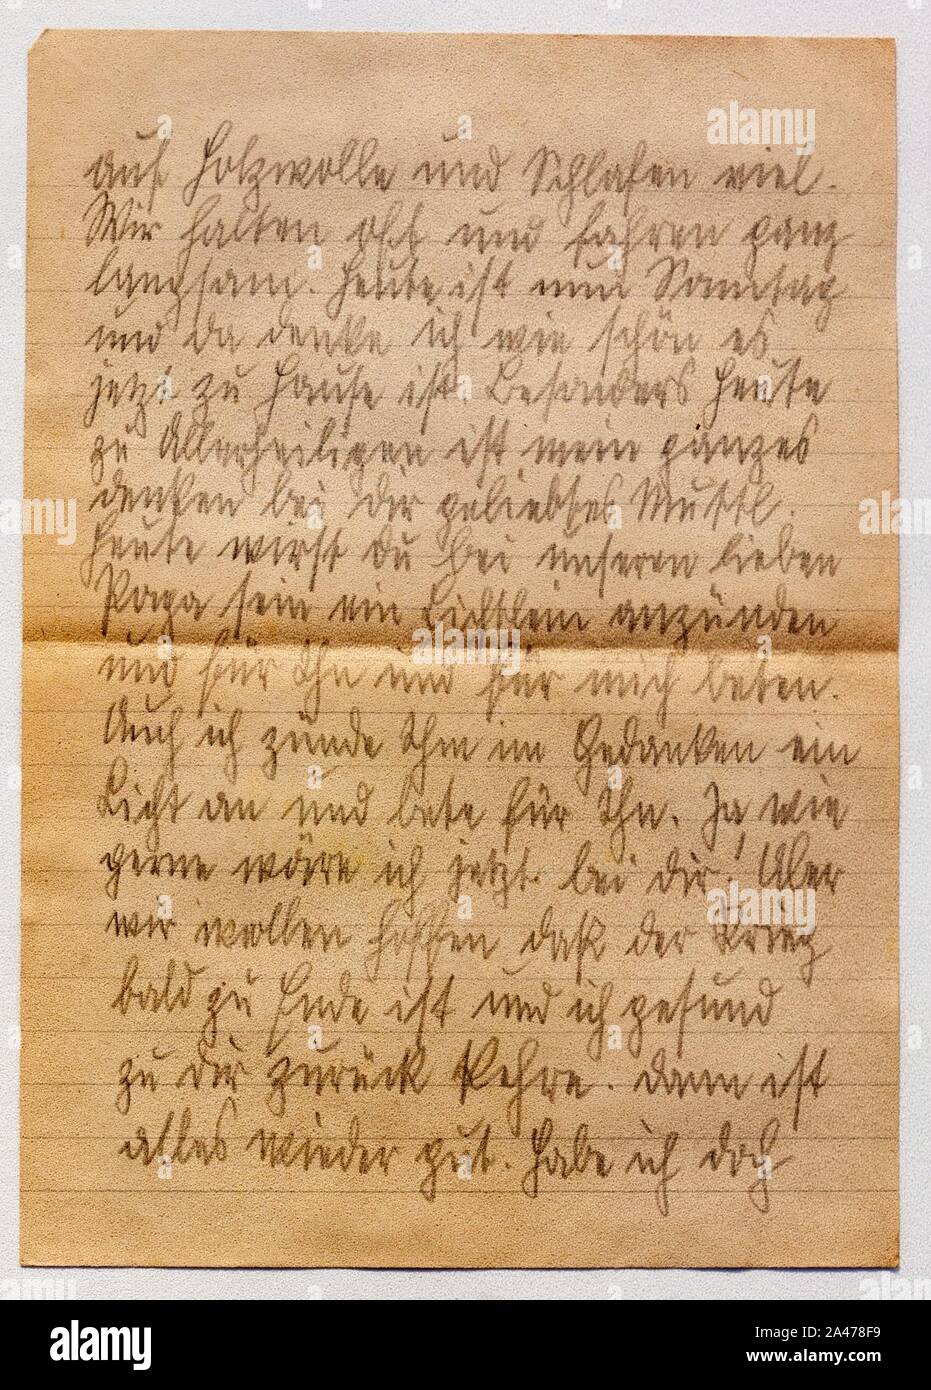 auf Holzwolle und Schlafen viel.
Wir halten oft und fahren ganz
langsam. Heute ist nun Sonntag
und da denke ich wie schön es
jetzt zu Hause ist. Besonders heute
zu Allerheiligen ist mein ganzes
denken bei dir geliebtes Muttl.
Heute wirst du bei unseren lieben
Papa sein ein Lichtlein anzünden
und für Ihn und für mich beten.
Auch ich zünde Ihm im Gedanken ein
Licht an und bete für Ihn. Ja, wie
gerne wäre ich jetzt bei dir! Aber
wir wollen hoffen daß der Krieg
bald zu Ende ist und ich gesund
zu dir zurück kehre. dann ist
alles wieder gut. Habe ich doch
alamy
a
alamy
Image ID: 2A478F9
www.alamy.com